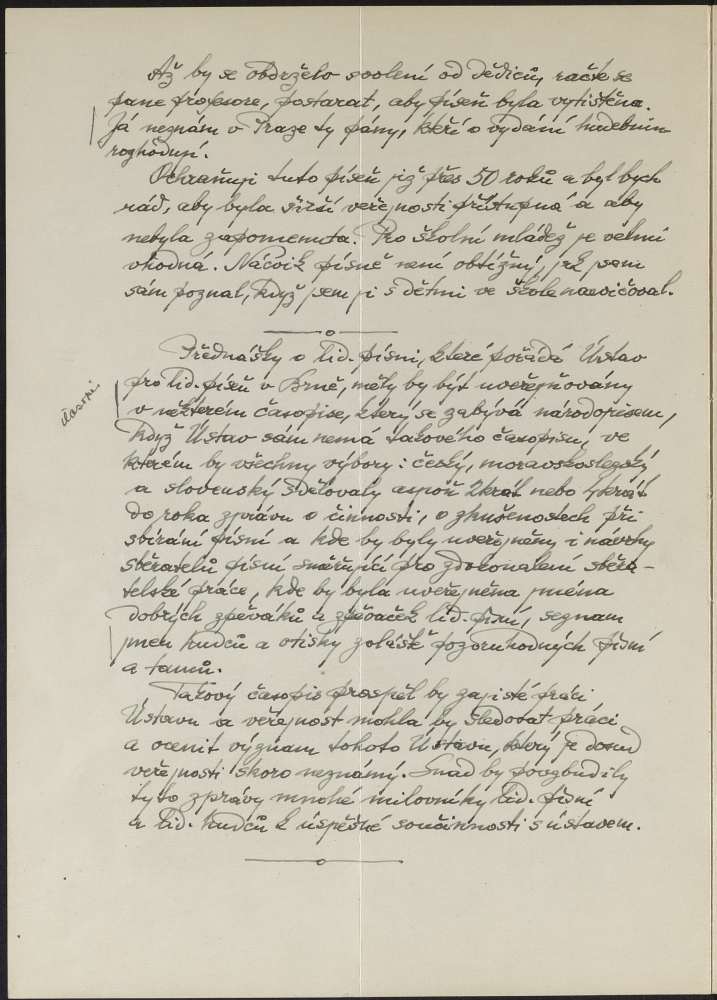 Až by se obdrželo svolení od dědiců, račte se
pane profesore, postarat, aby píseň byla vytištěna.
Já neznám v Praze ty pány, kteří o vydání hudebnin
rozhodují.
Ochraňuji tuto píseň již přes 50 roků a byl bych
rád, aby byla širší veřejnosti přístupná a aby
nebyla zapomenuta. Pro školní mládež je velmi
vhodná. Nácvik písně není obtížný, jak jsem
sám poznal, když jsem ji s dětmi ve škole nacvičoval.
Přednášky o lid. písni, které pořádá Ústav
pro lid. píseň v Brně, měly by být uveřejňovány
v některém časopise, který se zabývá národopisem,
když Ústav sám nemá takového časopisu, ve
kterém by všechny výbory: český, moravskoslezský
a slovenský sdělovaly aspoň 2krát nebo 4krát
do roka zprávu o činnosti, o zkušenostech při
sbírání písní a kde by byly uveřejněny i návrhy
sběratelů písní směřující pro zdokonalení sběra-
telské práce, kde by byla uveřejněna jména
dobrých zpěváků a zpěvaček lid. písní, seznam
jmen hudců a otisky zvláště pozoruhodných písní
a tanců.
Takový časopis prospěl by zajisté práci
Ústavu a veřejnost mohla by sledovat práci
a ocenit význam tohoto Ústavu, který je dosud
veřejnosti skoro neznámý. Snad by povzbudily
tyto zprávy mnohé milovníky lid. písní
a lid. hudců k úspěšné součinnosti s ústavem.